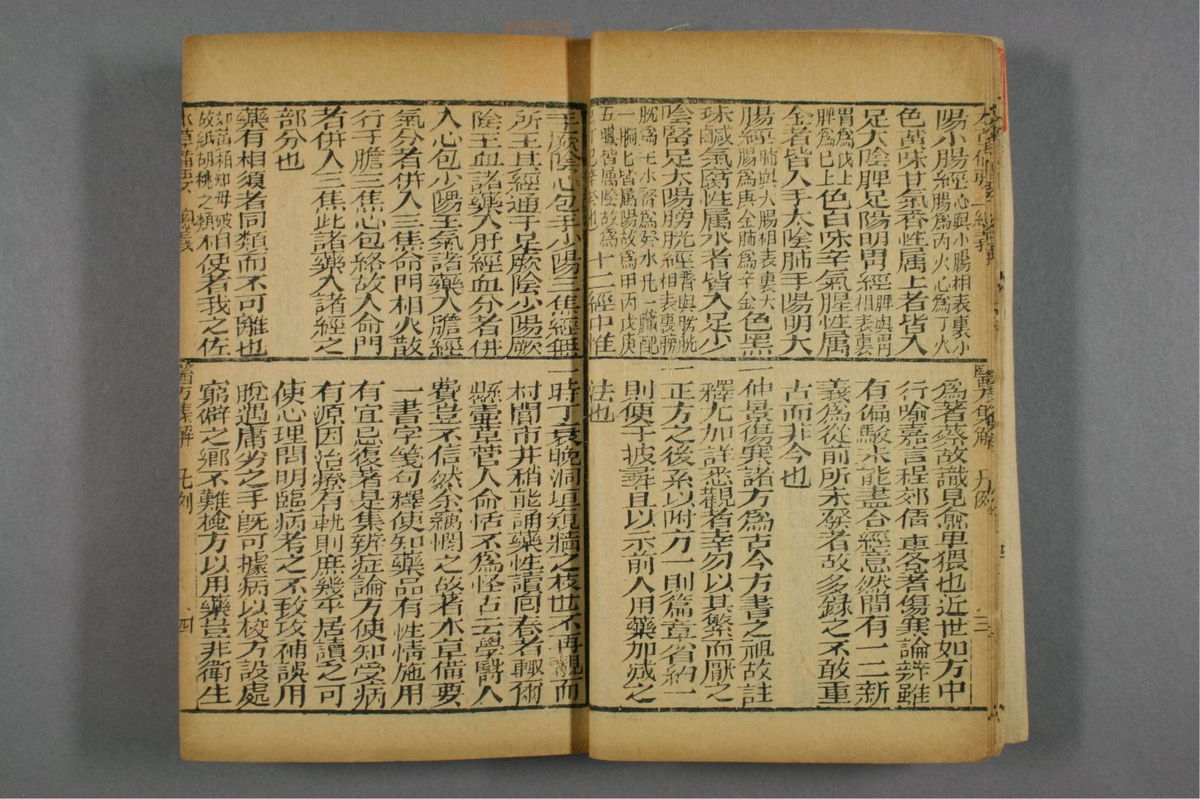 陽小腸經心與小腸相表裏小腸爲丙火心爲丁火
色黃味甘氣香性属土者皆入
足太陰脾足陽明胃經脾與胃相表裏
胃爲戊土脾爲己土色白味辛氣腥性属
金者皆入手太陰肺手陽明大
腸經肺與大腸相表裏大腸爲庚金肺爲辛金色黑
味鹹氣腐性属水者皆入足少
陰腎足太陽膀胱經腎與膀胱相表裏膀
胱爲壬水腎爲癸水凡一臟配
一腑腑皆属陽故爲甲丙戊庚
壬臟皆属陰故爲乙丁己辛癸也十二經中惟
手厥陰心包手少陽三焦經無
所主其經通于足厥陰少陽厥
陰主血諸藥入肝經血分者併
入心包少陽主氣諸藥入膽經
氣分者併入三焦命門相火散
行于膽三焦心包絡故入命門
者併入三焦此諸藥入諸經之
部分也
藥有相須者同類而不可離也
如黃柏知母破故紙胡桃之類相使者我之佐
本草備要 總義
爲著蔡故識見愈卑猥也近世如方中
行喻嘉言程郊倩軰各著傷寒論辨雖
有偏駁未能盡合經意然間有一二新
義爲從前所未發者故多錄之不敢重
古而非今也
一仲景傷寒諸方爲古今方書之祖故註
釋尤加詳悉觀者幸勿以其繁而厭之
一正方之後系以附方一則篇章省約一
則便于披尋且以示前人用藥加減之
法也
一時丁衰晚洞垣窺牆之技世不再覩而
村閭市井稍能誦藥性讀回春者輙爾
懸壺草菅人命恬不爲怪古云學醫人
費豈不信然余竊憫之故著本草備要
一書字箋句釋使知藥品有性情施用
有宜忌復著是集辨症論方使知受病
有源因治療有軌則庶幾平居讀之可
使心理開明臨病考之不致攻補誤用
脫遇庸劣之手旣可據病以校方設處
窮僻之鄉不難檢方以用藥豈非衛生
醫方集解 凡例 三
醫方集解 凡例 四